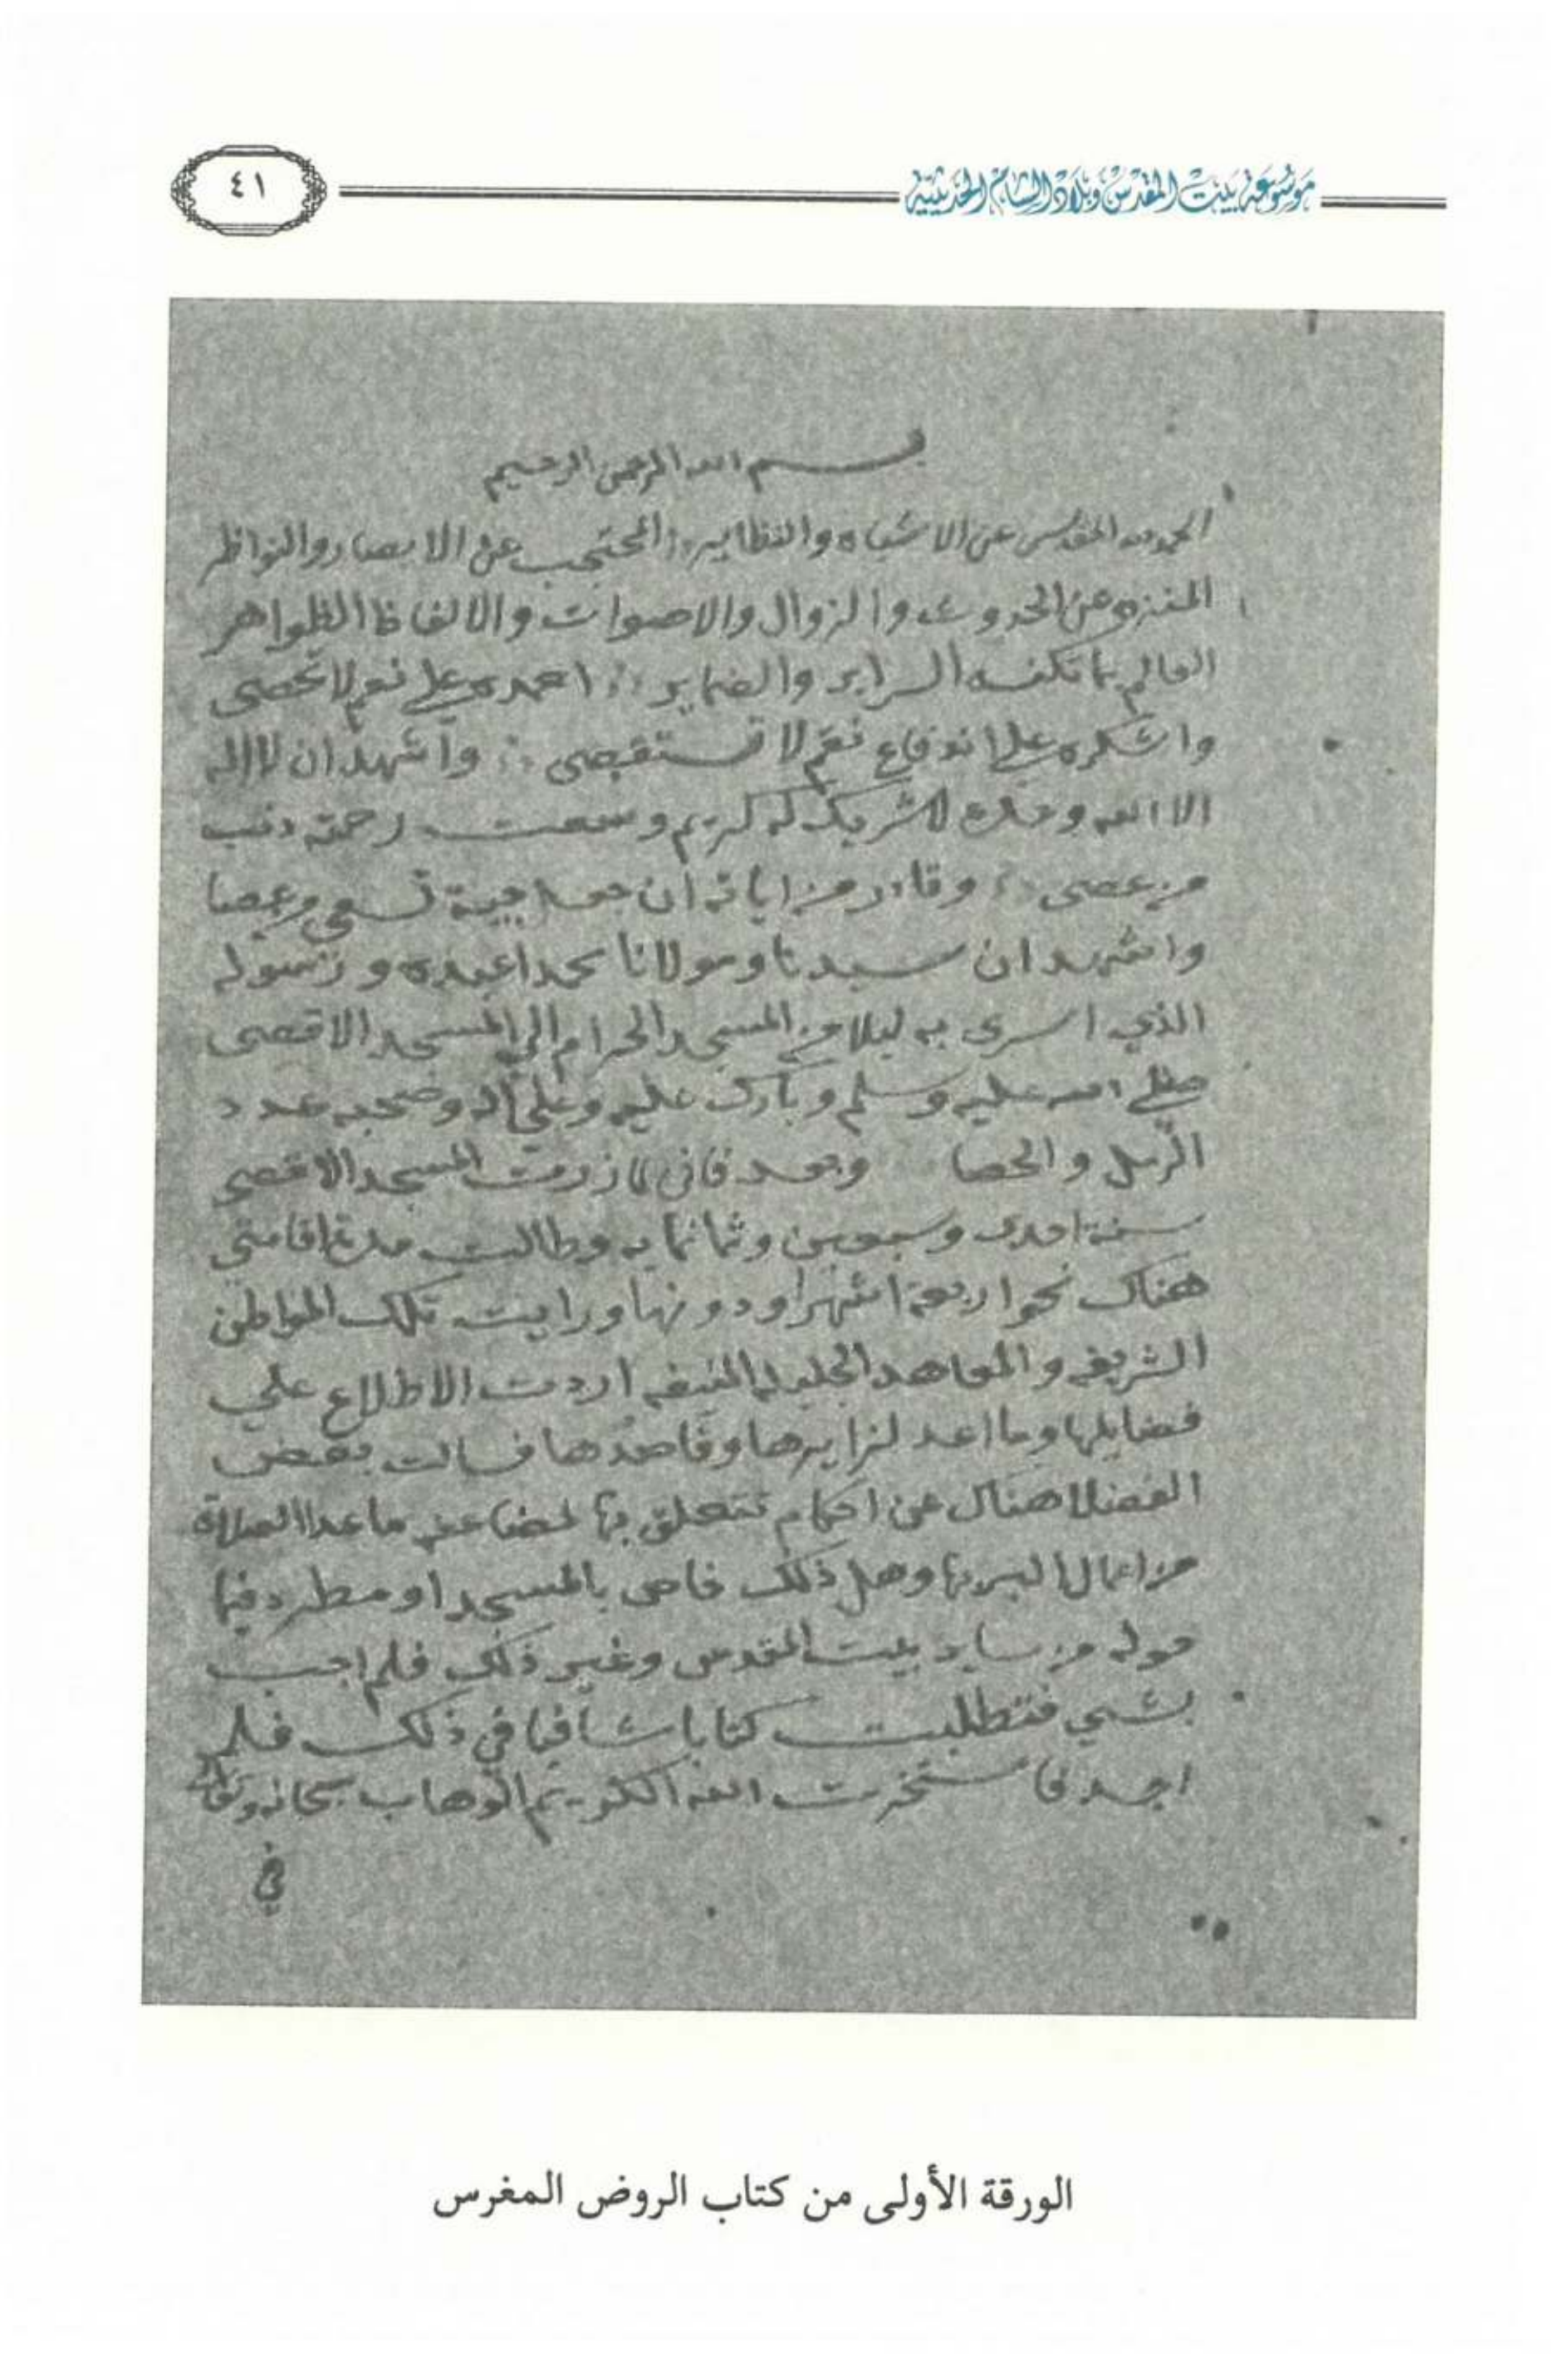 موسوعة بيت المقدس وبلاد الشام الحديثية
٤١
بسم الله الرحمن الرحيم
الحمد لله المقدس عن الاشباه والنظاير المحتجب عن الابصار والنواظر
المنزه عن الحدوث والزوال والاصوات والالفاظ الظواهر
العالم بما تكنه السراير والضماير احمده على نعم لا تحصى
واشكره على اندفاع نقم لا تستقصى واشهد ان لا اله
الا الله وحده لا شريك له كريم وسعت رحمته ذنب
من عصى وقادر من اياته ان حية تسعى من عصا
واشهد ان سيدنا ومولانا محمدا عبده ورسوله
الذي اسرى به ليلا من المسجد الحرام الى المسجد الاقصى
صلى الله عليه وسلم وبارك عليه وعلى اله وصحبه عدد
الرمل والحصا وبعد فاني لما زرت المسجد الاقصى
سنة احدى وسبعين وثمانمايه وطالت مدة اقامتي
هناك نحو اربعة اشهر او دونها ورايت تلك المواطن
الشريفه والمعاهد الجليله المنيفه اردت الاطلاع على
فضايلها وما اعد لزايرها وقاصدها فسالت بعض
الفضلا هناك عن احكام تتعلق بها ما عدا الصلاة
من اعمال البر بها وهل ذلك خاص بالمسجد او مطرد فيما
حوله من ساير بيت المقدس وغير ذلك فلم اجب
بشي فتطلبت كتابا شافيا في ذلك فلم
اجد فاستخرت الله الكريم الوهاب سبحانه وتعالى
في
الورقة الأولى من كتاب الروض المغرس